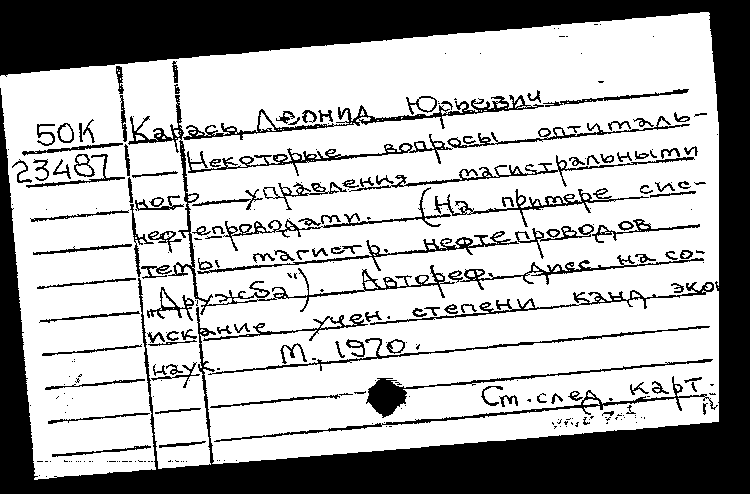 50К
23487
Карась, Леонид Юрьевич
Некоторые вопросы оптималь-
ного управления магистральными
нефтепроводами. (На примере сис-
темы магистр. нефтепроводов
"Дружба"). Автореф. дисс. на со-
искание учен. степени канд. экон
наук. М., 1970.
Ст. след. карт.